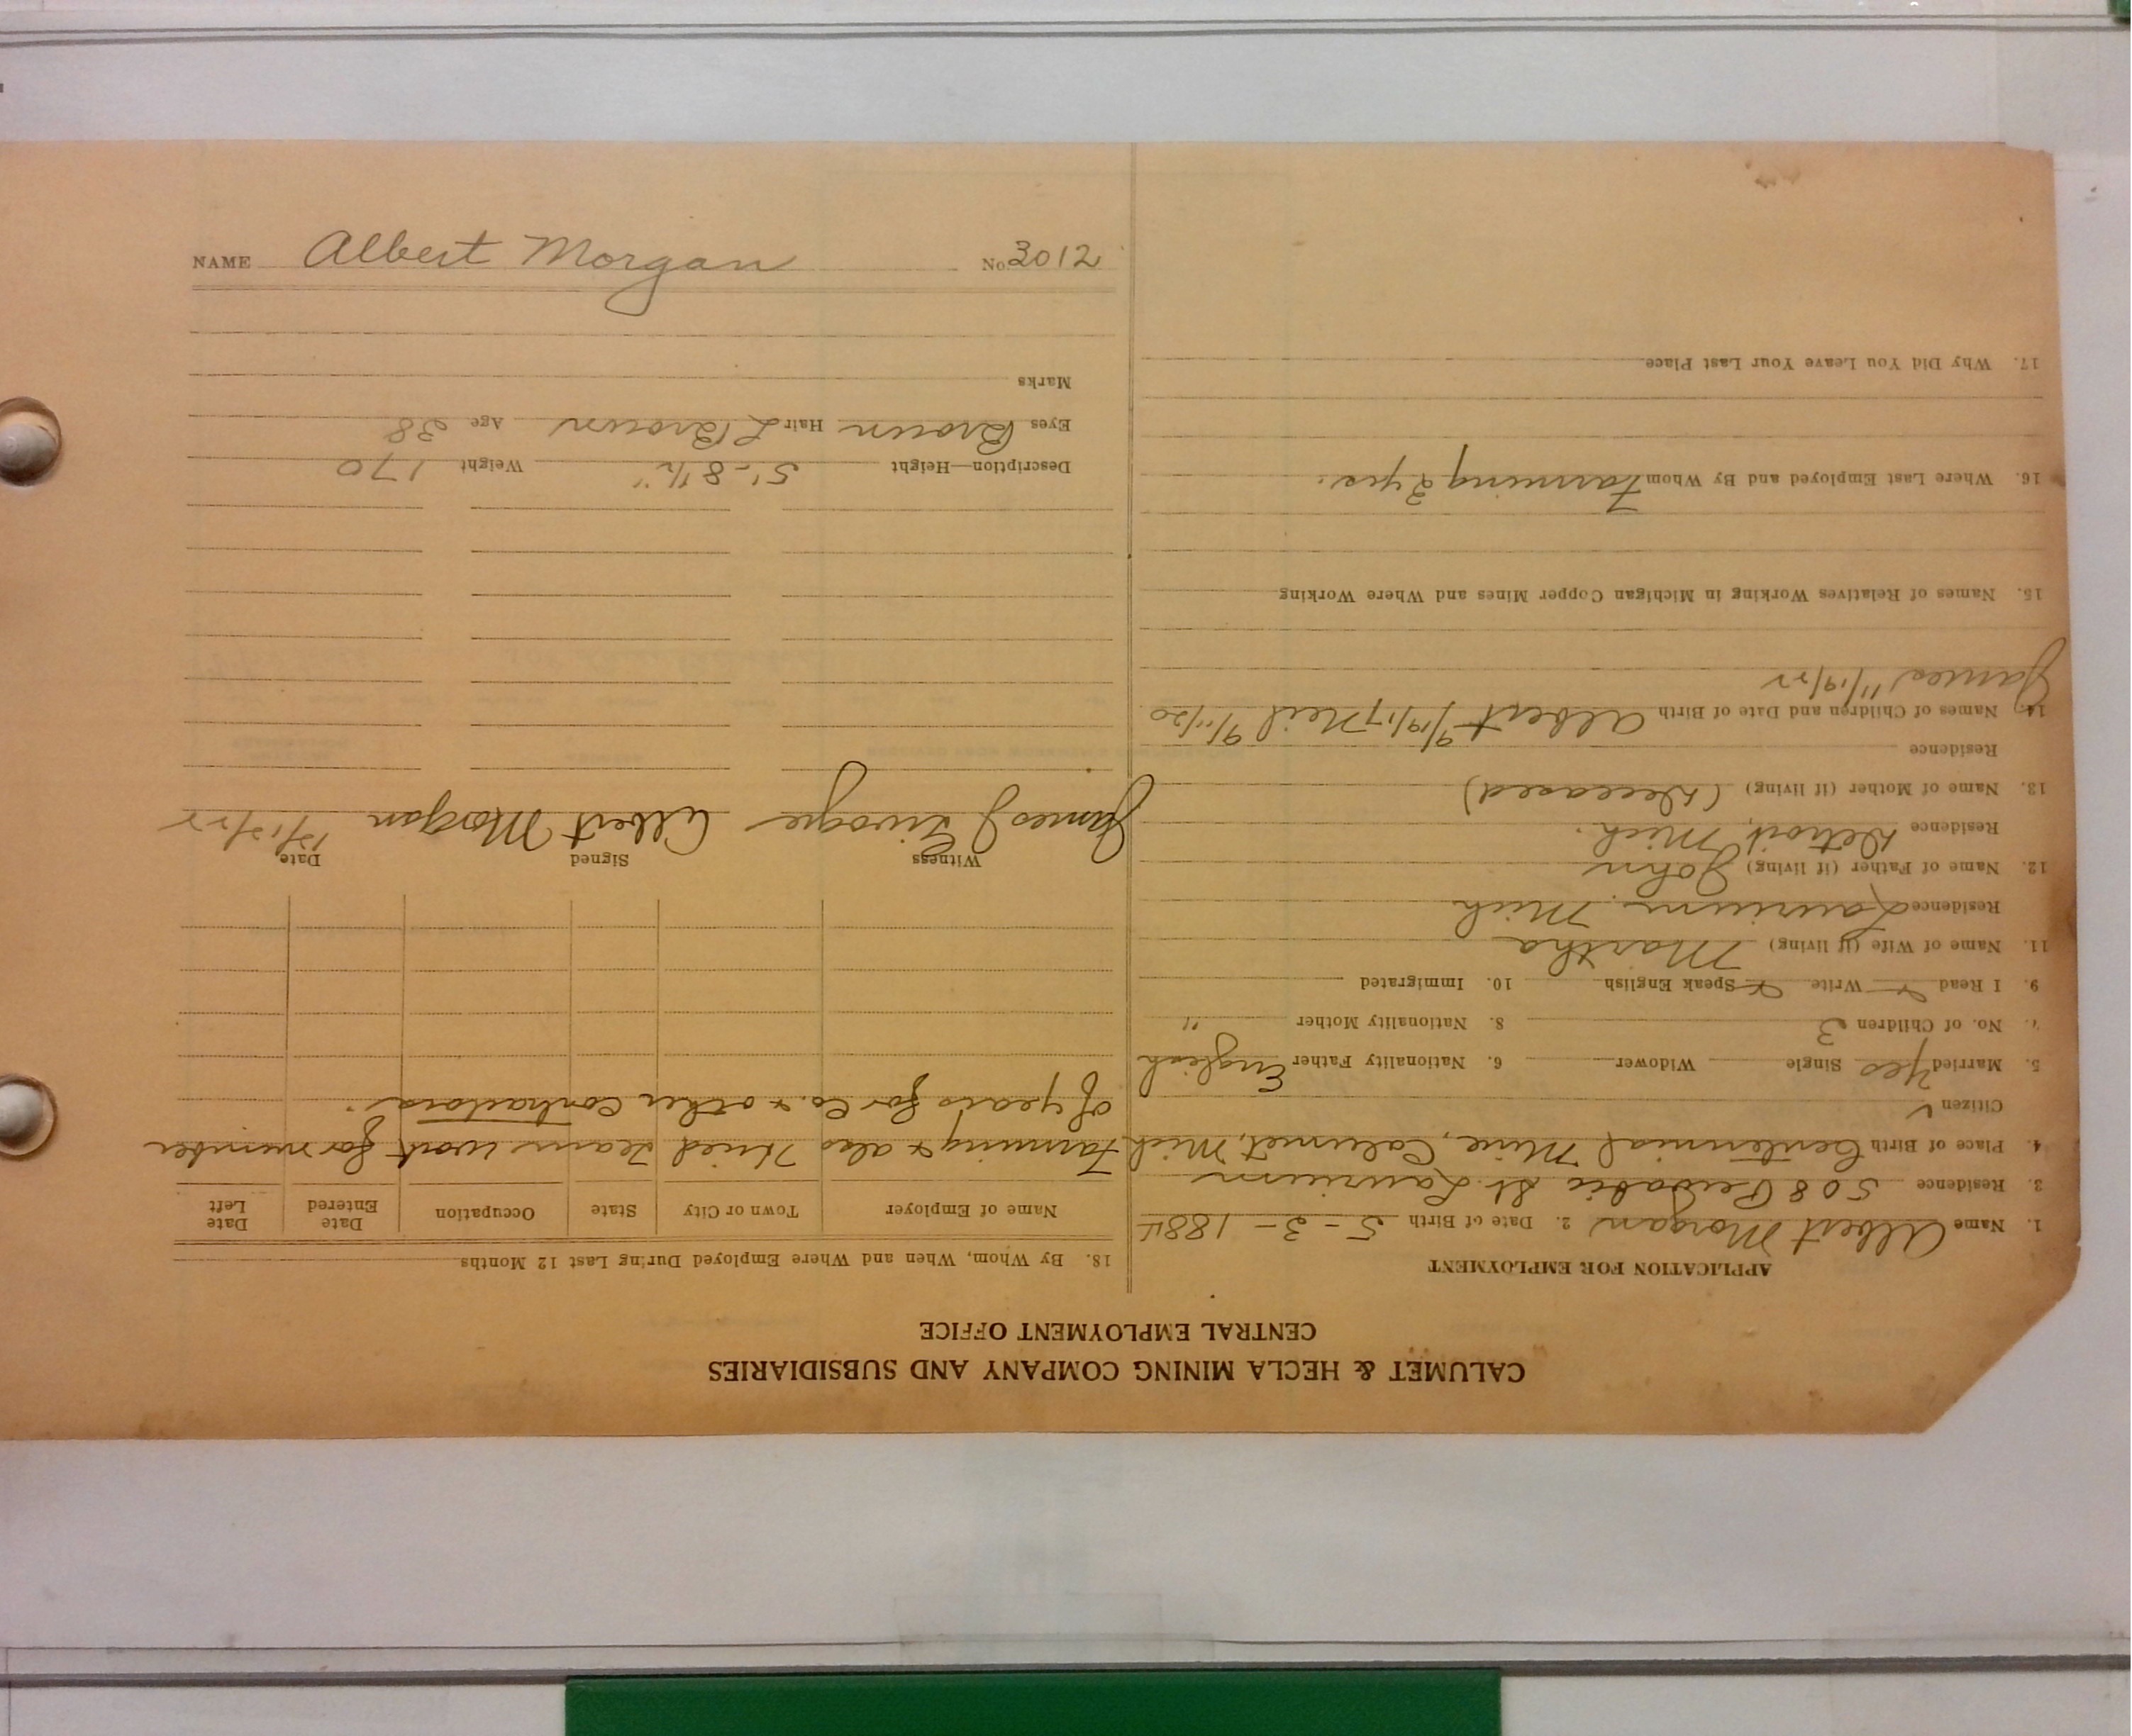 CALUMET & HECLA MINING COMPANY AND SUBSIDIARIES
CENTRAL EMPLOYMENT OFFICE
APPLICATION FOR EMPLOYMENT
1. Name Albert Morgan 2. Date of Birth 5-3-1884
3. Residence 508 Pewabic St. Laurium
4. Place of Birth Centennial Mine, Calumet, Mich
Citizen ✓
5. Married Yes Single Widower 6. Nationality Father English
7. No. of Children 3 8. Nationality Mother "
9. I Read Write Speak English 10. Immigrated
11. Name of Wife (if living) Martha
Residence Laurium Mich
12. Name of Father (if living) John
Residence Detroit, Mich.
13. Name of Mother (if living) (Deceased)
Residence
14. Names of Children and Date of Birth Albert 9/19/17 Neil 9/11/20
James 11/19/22
15. Names of Relatives Working in Michigan Copper Mines and Where Working
16. Where Last Employed and By Whom Farming 2 yrs.
17. Why Did You Leave Your Last Place
18. By Whom, When and Where Employed During Last 12 Months
Name of Employer Town or City State Occupation Date Entered Date Left
Farming & also tried team work for number
of years for Co. & other contractors.
Witness Signed Date
James J Albert Morgan 12/12/22
Description—Height 5'-8 1/2" Weight 170
Eyes Brown Hair L Brown Age 38
Marks
NAME Albert Morgan No. 3012